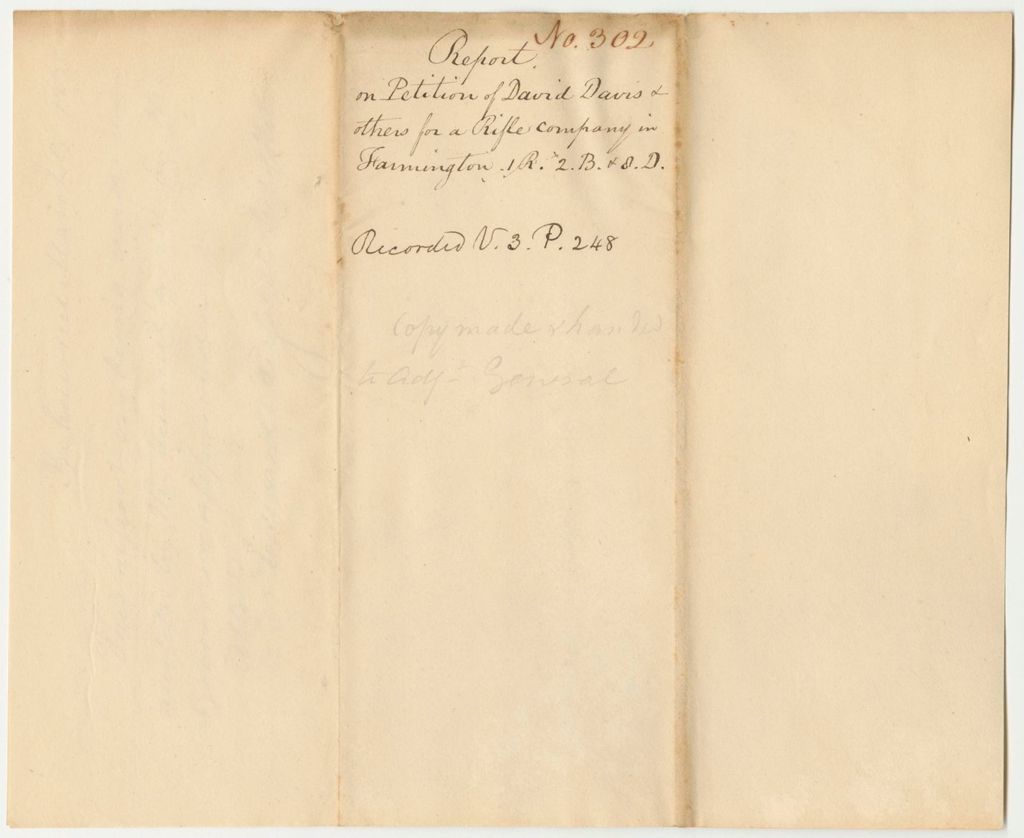 No. 302
Report.
on Petition of David Davis &
others for a Rifle company in
Farmington. 1 R. 2. B. & 8. D.
Recorded V. 3. P. 248
Copy made & handed
to Adjt General